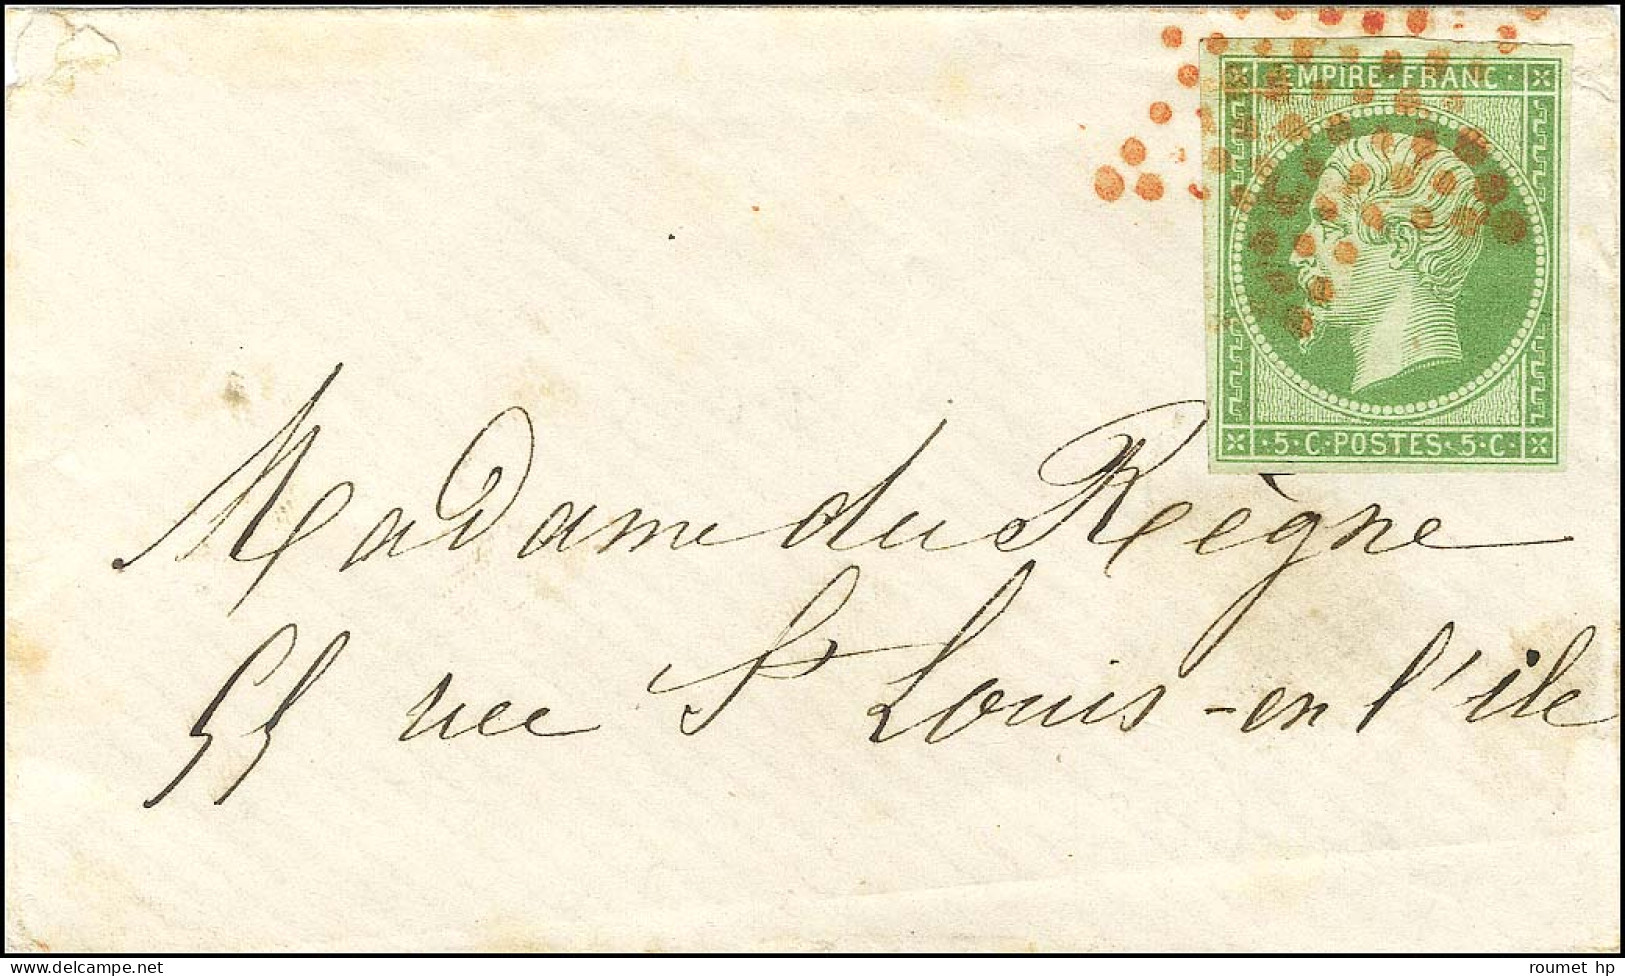 EMPIRE·FRANC·
·5·C·POSTES·5·C·
Madame du Règne
55 rue St Louis-en l'île
delcampe.net
roumet_hp